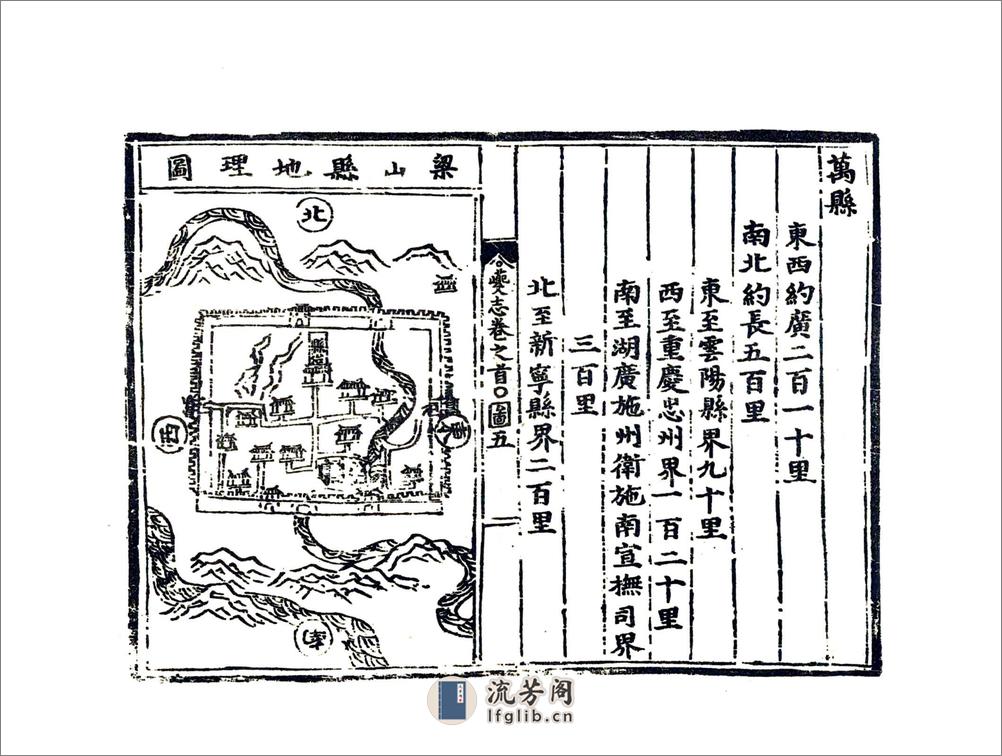 萬縣
東西約廣二百一十里
南北約長五百里
東至雲陽縣界九十里
西至重慶忠州界一百二十里
南至湖廣施州衛施南宣撫司界
三百里
北至新寧縣界二百里
夔志卷之首〇圖五
梁山縣地理圖
北
縣
東
西
流芳阁
lfglib.cn